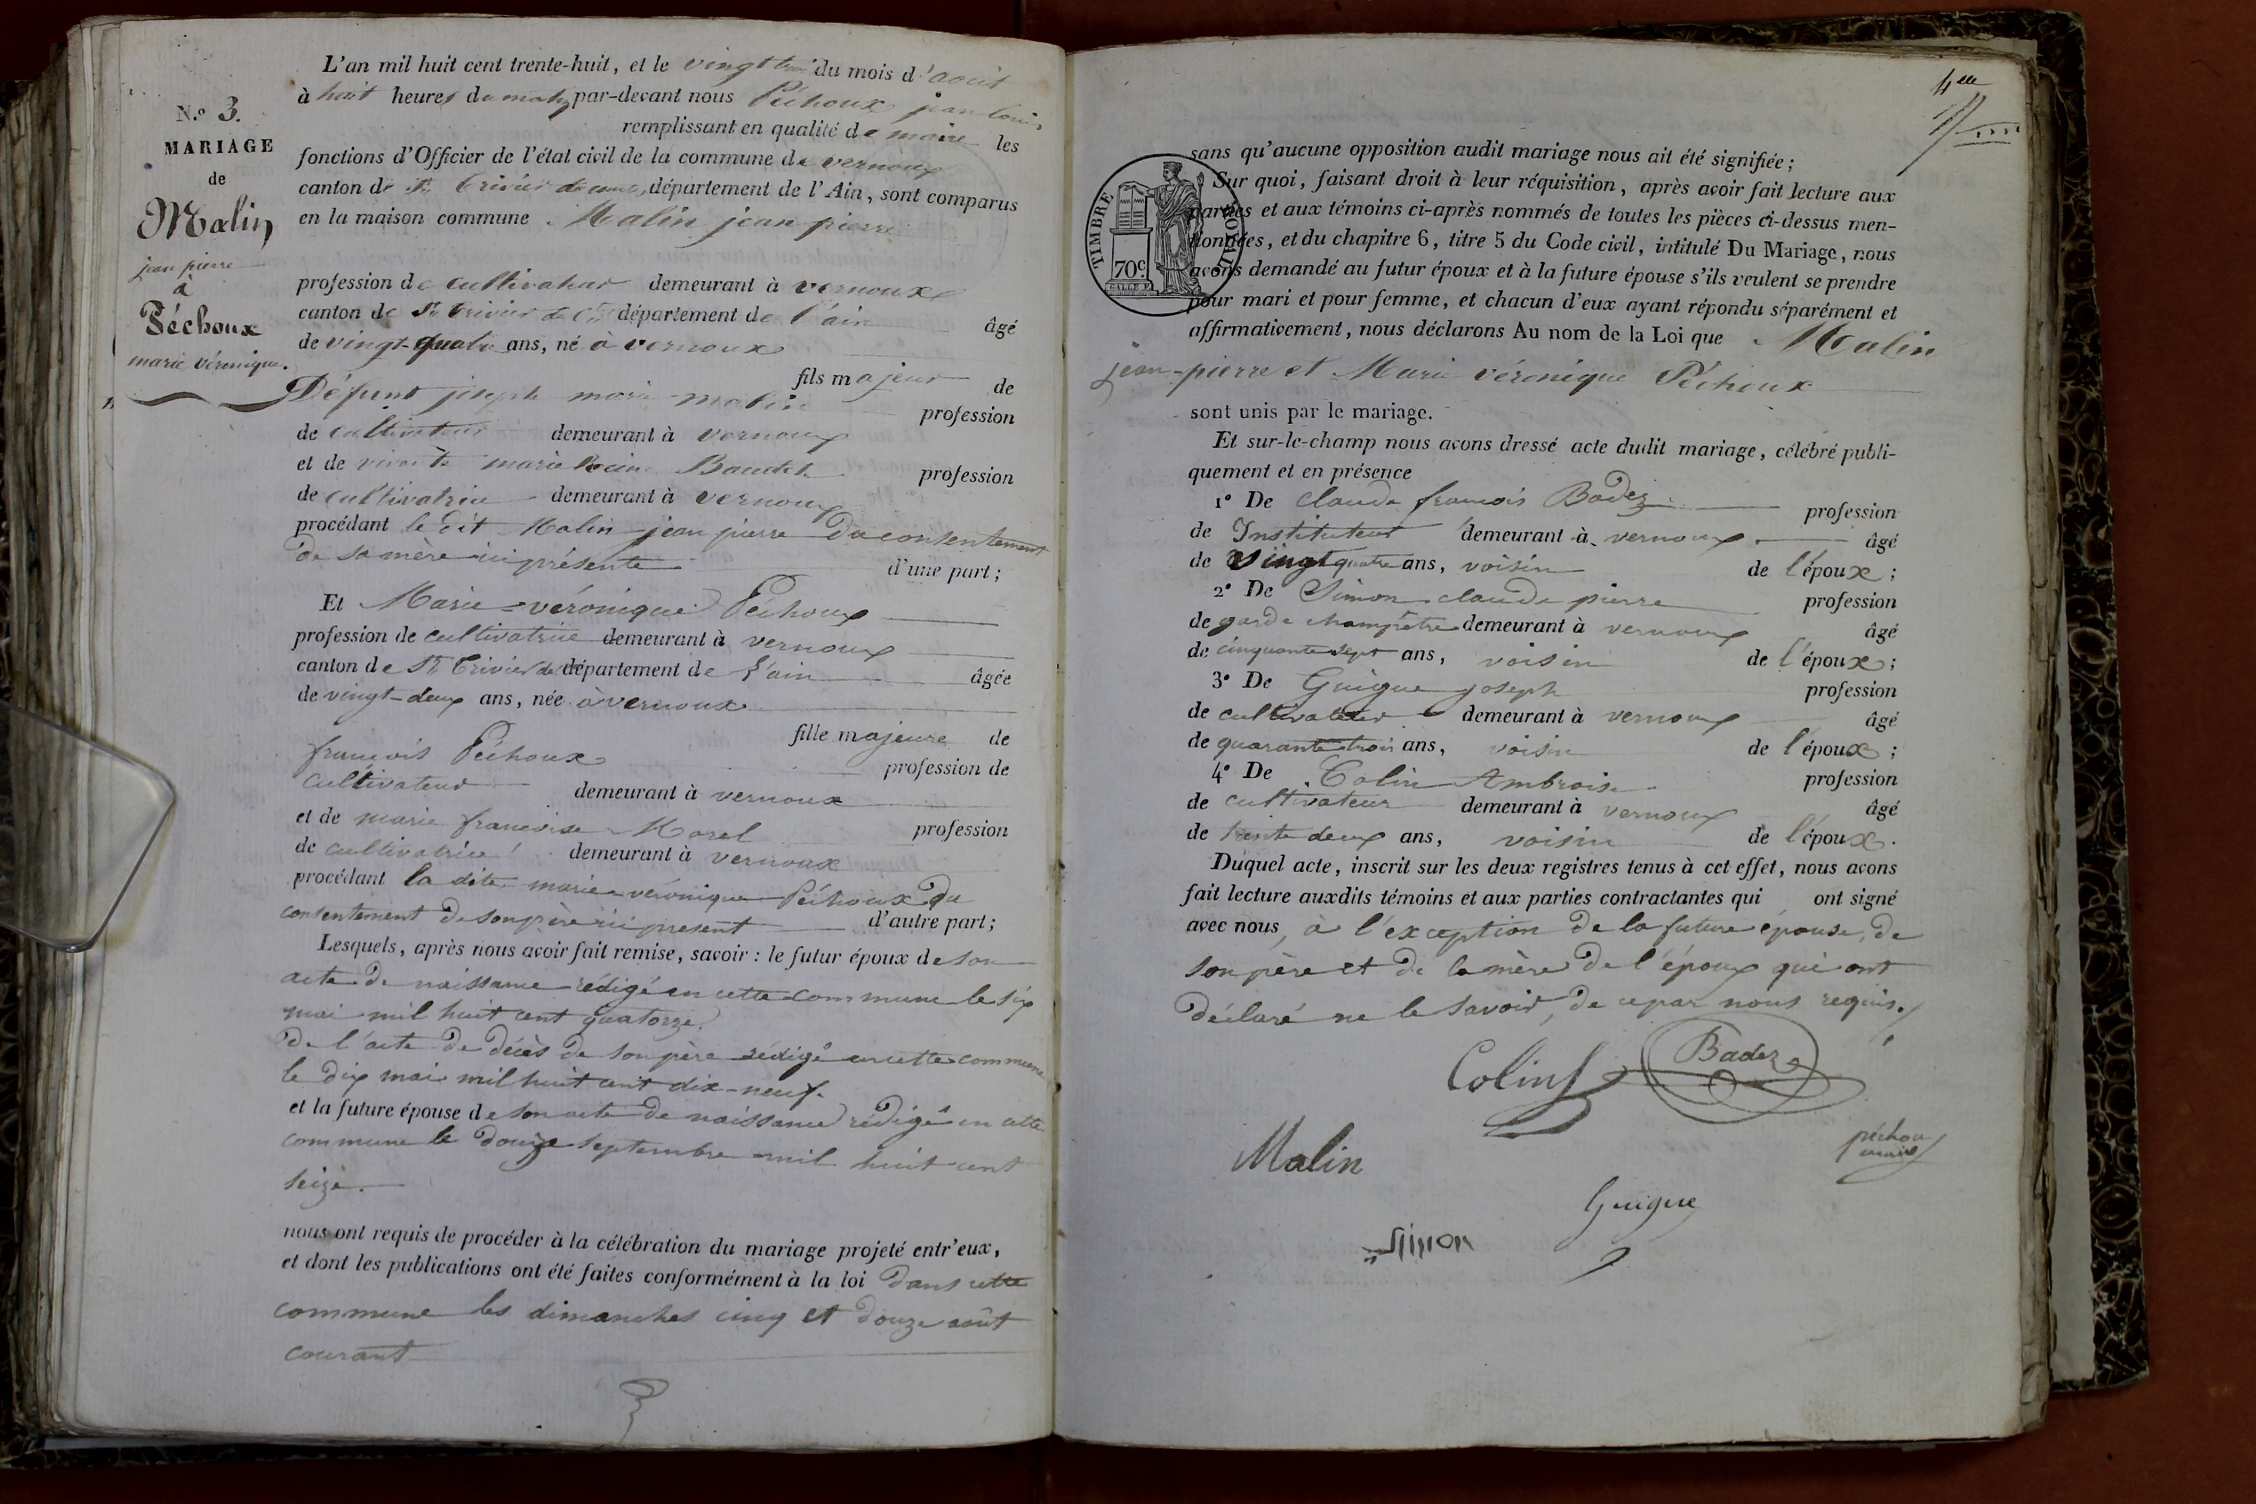 N.o 3.
MARIAGE
de
Malin
jean pierre
à
Péchoux
marie véronique.
L'an mil huit cent trente-huit, et le vingt trois du mois d'août
à huit heures du matin par-devant nous Péchoux jean louis
remplissant en qualité de maire les
fonctions d'Officier de l'état civil de la commune de vernoux
canton de St Trivier de département de l'Ain, sont comparus
en la maison commune Malin jean pierre
profession de cultivateur demeurant à vernoux
canton de St Trivier de Ctes département de l'ain âgé
de vingt-quatre ans, né à vernoux
fils majeur de
Défunt joseph marie malin profession
de cultivateur demeurant à vernoux
et de vivante marie Baudet profession
de cultivatrice demeurant à vernoux
procédant le dit Malin jean pierre du consentement
de sa mère ici présente d'une part;
Et Marie-véronique Péchoux
profession de cultivatrice demeurant à vernoux
canton de St Trivier de département de l'ain âgée
de vingt-deux ans, née à vernoux
fille majeure de
françois Péchoux profession de
cultivateur demeurant à vernoux
et de marie francoise Morel profession
de cultivatrice demeurant à vernoux
procédant la dite marie véronique Péchoux du
consentement de son père ici present d'autre part;
Lesquels, après nous avoir fait remise, savoir: le futur époux de son
acte de naissance rédigé en cette commune le six
mai mil huit cent quatorze.
De l'acte de décès de son père rédigé en cette commune
le dix mai mil huit cent dix-neuf.
et la future épouse de son acte de naissance rédigé en cette
commune le douze septembre mil huit cent
seize.
nous ont requis de procéder à la célébration du mariage projeté entr'eux,
et dont les publications ont été faites conformément à la loi dans cette
commune les dimanches cinq et douze août
courant
TIMBRE ROYAL
70c.
sans qu'aucune opposition audit mariage nous ait été signifiée;
Sur quoi, faisant droit à leur réquisition, après avoir fait lecture aux
parties et aux témoins ci-après nommés de toutes les pièces ci-dessus men-
tionnées, et du chapitre 6, titre 5 du Code civil, intitulé Du Mariage, nous
avons demandé au futur époux et à la future épouse s'ils veulent se prendre
pour mari et pour femme, et chacun d'eux ayant répondu séparément et
affirmativement, nous déclarons Au nom de la Loi que Malin
jean-pierre et Marie véronique Péchoux
sont unis par le mariage.
Et sur-le-champ nous avons dressé acte dudit mariage, célébré publi-
quement et en présence
1° De claude françois Badez profession
de Instituteur demeurant à vernoux âgé
de vingt quatre ans, voisin de l'époux;
2° De Simon claude pierre profession
de garde champêtre demeurant à vernoux âgé
de cinquante sept ans, voisin de l'époux;
3° De Guigue joseph profession
de cultivateur demeurant à vernoux âgé
de quarante trois ans, voisin de l'époux;
4° De Colin Ambroise profession
de cultivateur demeurant à vernoux âgé
de trente deux ans, voisin de l'époux.
Duquel acte, inscrit sur les deux registres tenus à cet effet, nous avons
fait lecture auxdits témoins et aux parties contractantes qui ont signé
avec nous, à l'exception de la future épouse, de
son père et de la mère de l'époux qui ont
déclaré ne le savoir, de ce par nous requis.
Colin
Badez
Malin
péchoux
maire
Guigue
Simon